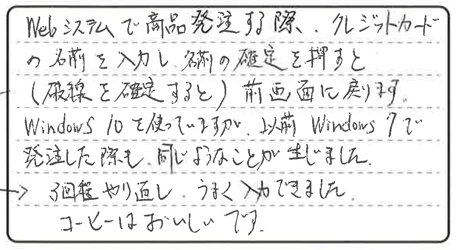 Webシステムで商品発注する際、クレジットカード
の名前を入力し名前の確定を押すと
(破線を確定すると)前画面に戻ります。
Windows 10を使っていますが、以前Windows 7で
発注した際も、同じようなことが生じました。
3回程やり直し、うまく入力できました。
コーヒーはおいしいです。